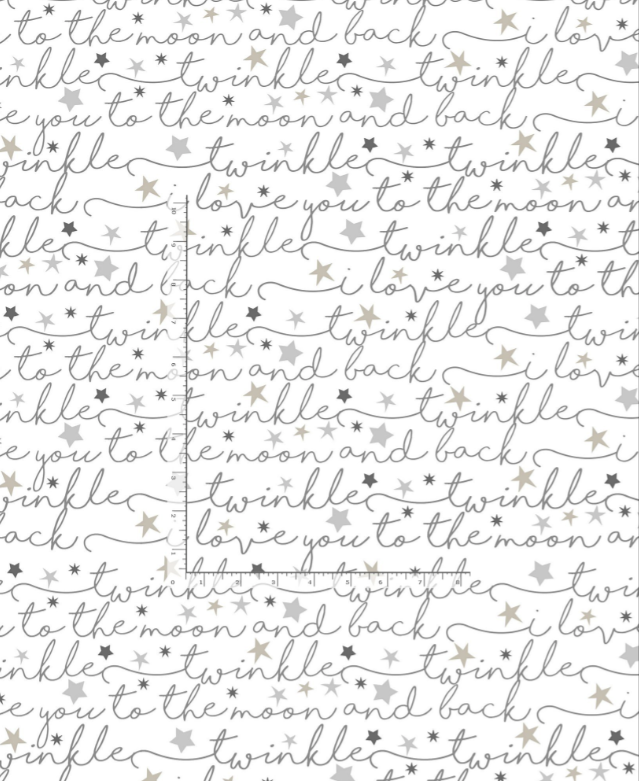 to the moon and back i love
inkle twinkle twinkle
e you to the moon and back i
winkle twinkle twinkle
ack i love you to the moon an
kle twinkle twinkle
on and back i love you to th
twinkle twinkle twin
to the moon and back i lov
inkle twinkle twinkle
e you to the moon and back i
winkle twinkle twinkle
ack i love you to the moon an
twinkle twinkle twin
to the moon and back i lov
inkle twinkle twinkle
e you to the moon and back i
winkle twinkle twinkle
10
9
8
7
6
5
4
3
2
1
0 1 2 3 4 5 6 7 8